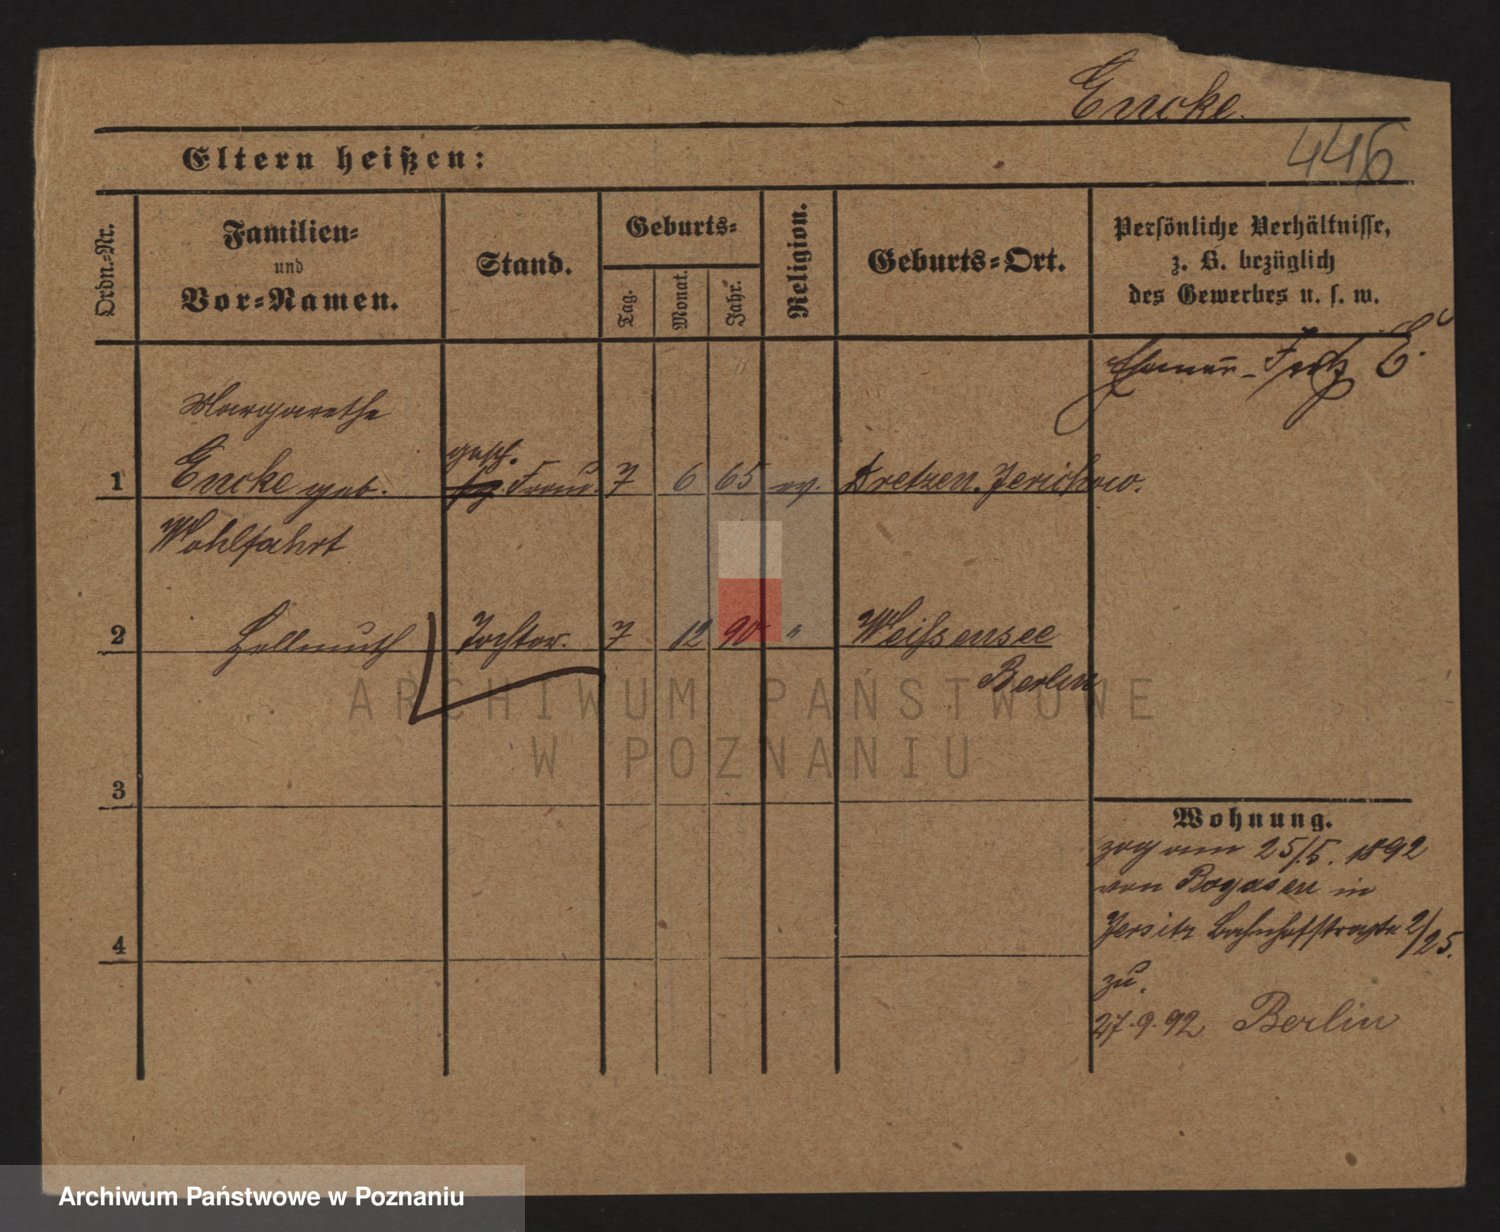 Encke.
446
Eltern heißen:
Ordn.-Nr.
Familien-
und
Vor-Namen.
Stand.
Geburts-
Tag.
Monat.
Jahr.
Religion.
Geburts-Ort.
Persönliche Verhältnisse,
z. B. bezüglich
des Gewerbes u. s. w.
Ehemann - Fritz E.
Margarethe
gesch.
1 Encke geb. Frau. 7 6 65 ev. Kretzen. Jerichow.
Wohlfahrt
2 Hellmuth Tochter. 7 12 90 " Weißensee
Berlin
3
4
Wohnung.
zog am 25/5. 1892
von Rogasen in
Jersitz Bahnhofstraße 2/25.
zu.
27.9.92 Berlin
ARCHIWUM PAŃSTWOWE
W POZNANIU
Archiwum Państwowe w Poznaniu